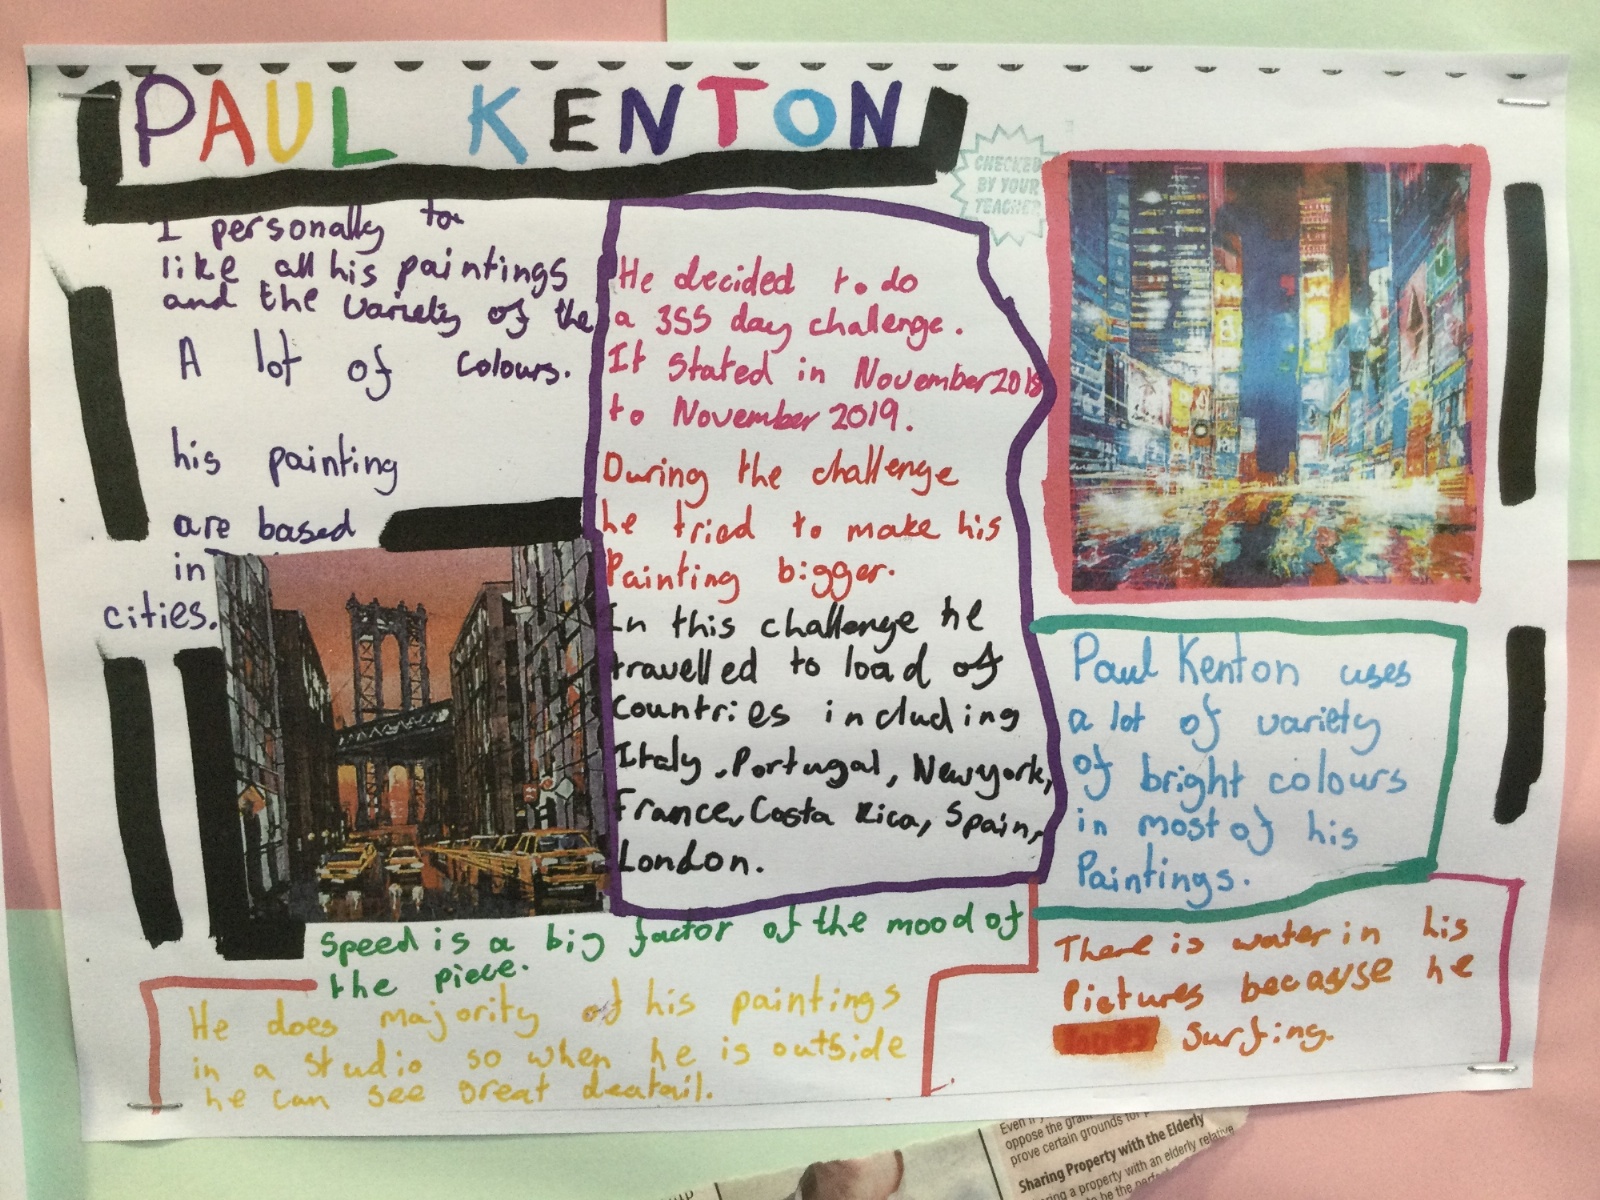 PAUL KENTON
CHECKED
BY YOUR
TEACHER
I personally to
like all his paintings
and the variety of the
A lot of colours.
his painting
are based
in
cities.
He decided to do
a 355 day challenge.
It stated in November 2018
to November 2019.
During the challenge
he tried to make his
Painting bigger.
In this challenge he
travelled to load of
Countries including
Italy, Portugal, Newyork,
France, Costa Rica, Spain,
London.
Paul Kenton uses
a lot of variety
of bright colours
in most of his
Paintings.
Speed is a big factor of the mood of
the piece.
He does majority of his paintings
in a studio so when he is outside
he can see great deatail.
There is water in his
Pictures becauyse he
surfing.
oppose the
prove certain grounds for
Sharing Property with the Elderly
a property with an elderly relative
to be the